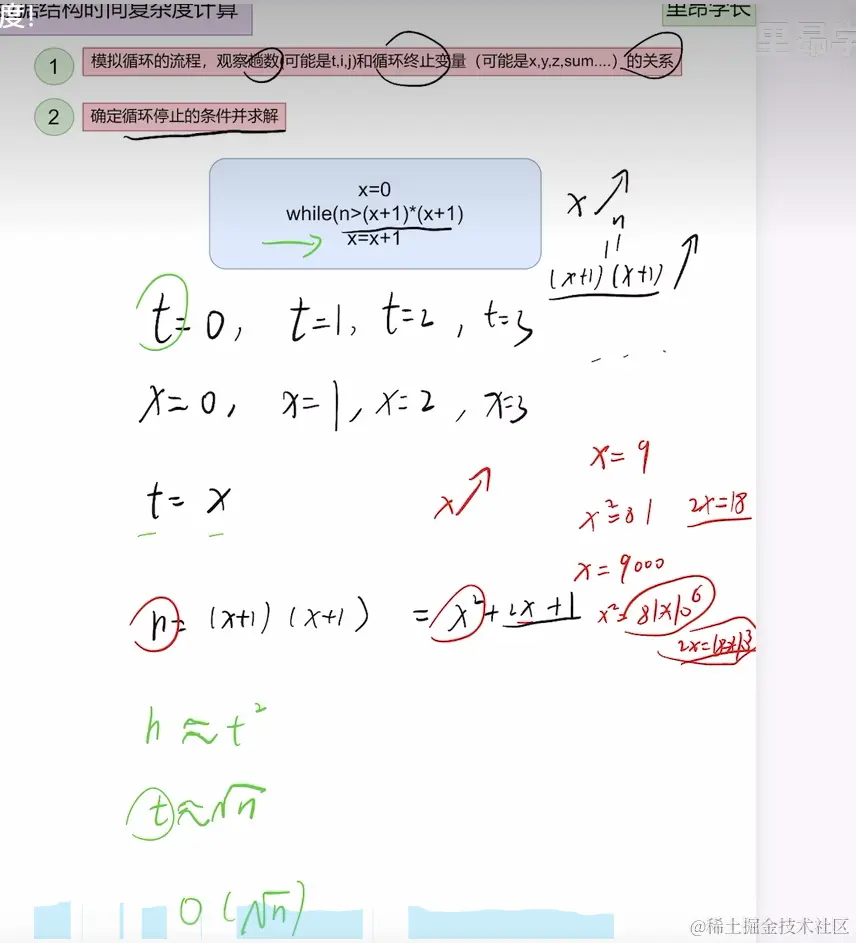 度!
据结构时间复杂度计算
里昂学长
里昂学
1
模拟循环的流程，观察趟数(可能是t,i,j)和循环终止变量（可能是x,y,z,sum....）的关系
2
确定循环停止的条件并求解
x=0
while(n>(x+1)*(x+1)
x=x+1
x
n
(x+1) (x+1)
t=0, t=1, t=2, t=3
...
x=0, x=1, x=2, x=3
x=9
t=x
x
x²=81 2x=18
x=9000
n=(x+1)(x+1) =x²+2x+1
x²=81×10⁶
2x=18×10³
n≈t²
t≈√n
O(√n)
@稀土掘金技术社区